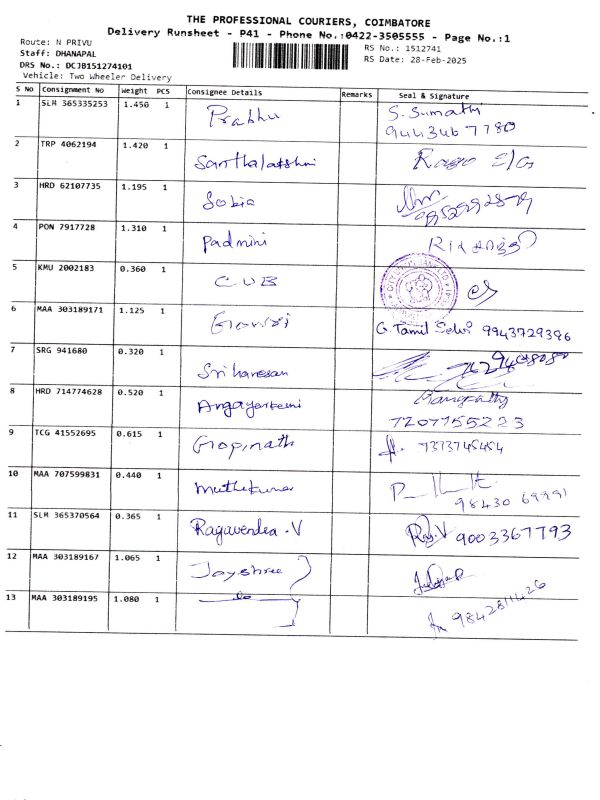 THE PROFESSIONAL COURIERS, COIMBATORE
Delivery Runsheet - P41 - Phone No.:0422-3505555 - Page No.:1
Route: N PRIVU
RS No.: 1512741
Staff: DHANAPAL
RS Date: 28-Feb-2025
DRS No.: DCJB151274101
Vehicle: Two Wheeler Delivery
S No Consignment No Weight PCS Consignee Details Remarks Seal & Signature
1 SLM 365335253 1.450 1 Prabhu S. Sumathi
9443467780
2 TRP 4062194 1.420 1 Santhalakshmi
3 HRD 62107735 1.195 1 Sobia
4 PON 7917728 1.310 1 Padmini
5 KMU 2002183 0.360 1 CUB
6 MAA 303189171 1.125 1 Gowri G. Tamil Selvi 9943729396
7 SRG 941680 0.320 1 Sriharesan
8 HRD 714774628 0.520 1 Angayarkanni
7207755223
9 TCG 41552695 0.615 1 Gopinath 7373745454
10 MAA 707599831 0.440 1 Muthukumar
98430 69991
11 SLM 365370564 0.365 1 Ragavendra .V Rag.V 9003367793
12 MAA 303189167 1.065 1 Jayshree
13 MAA 303189195 1.080 1 do 9842811426